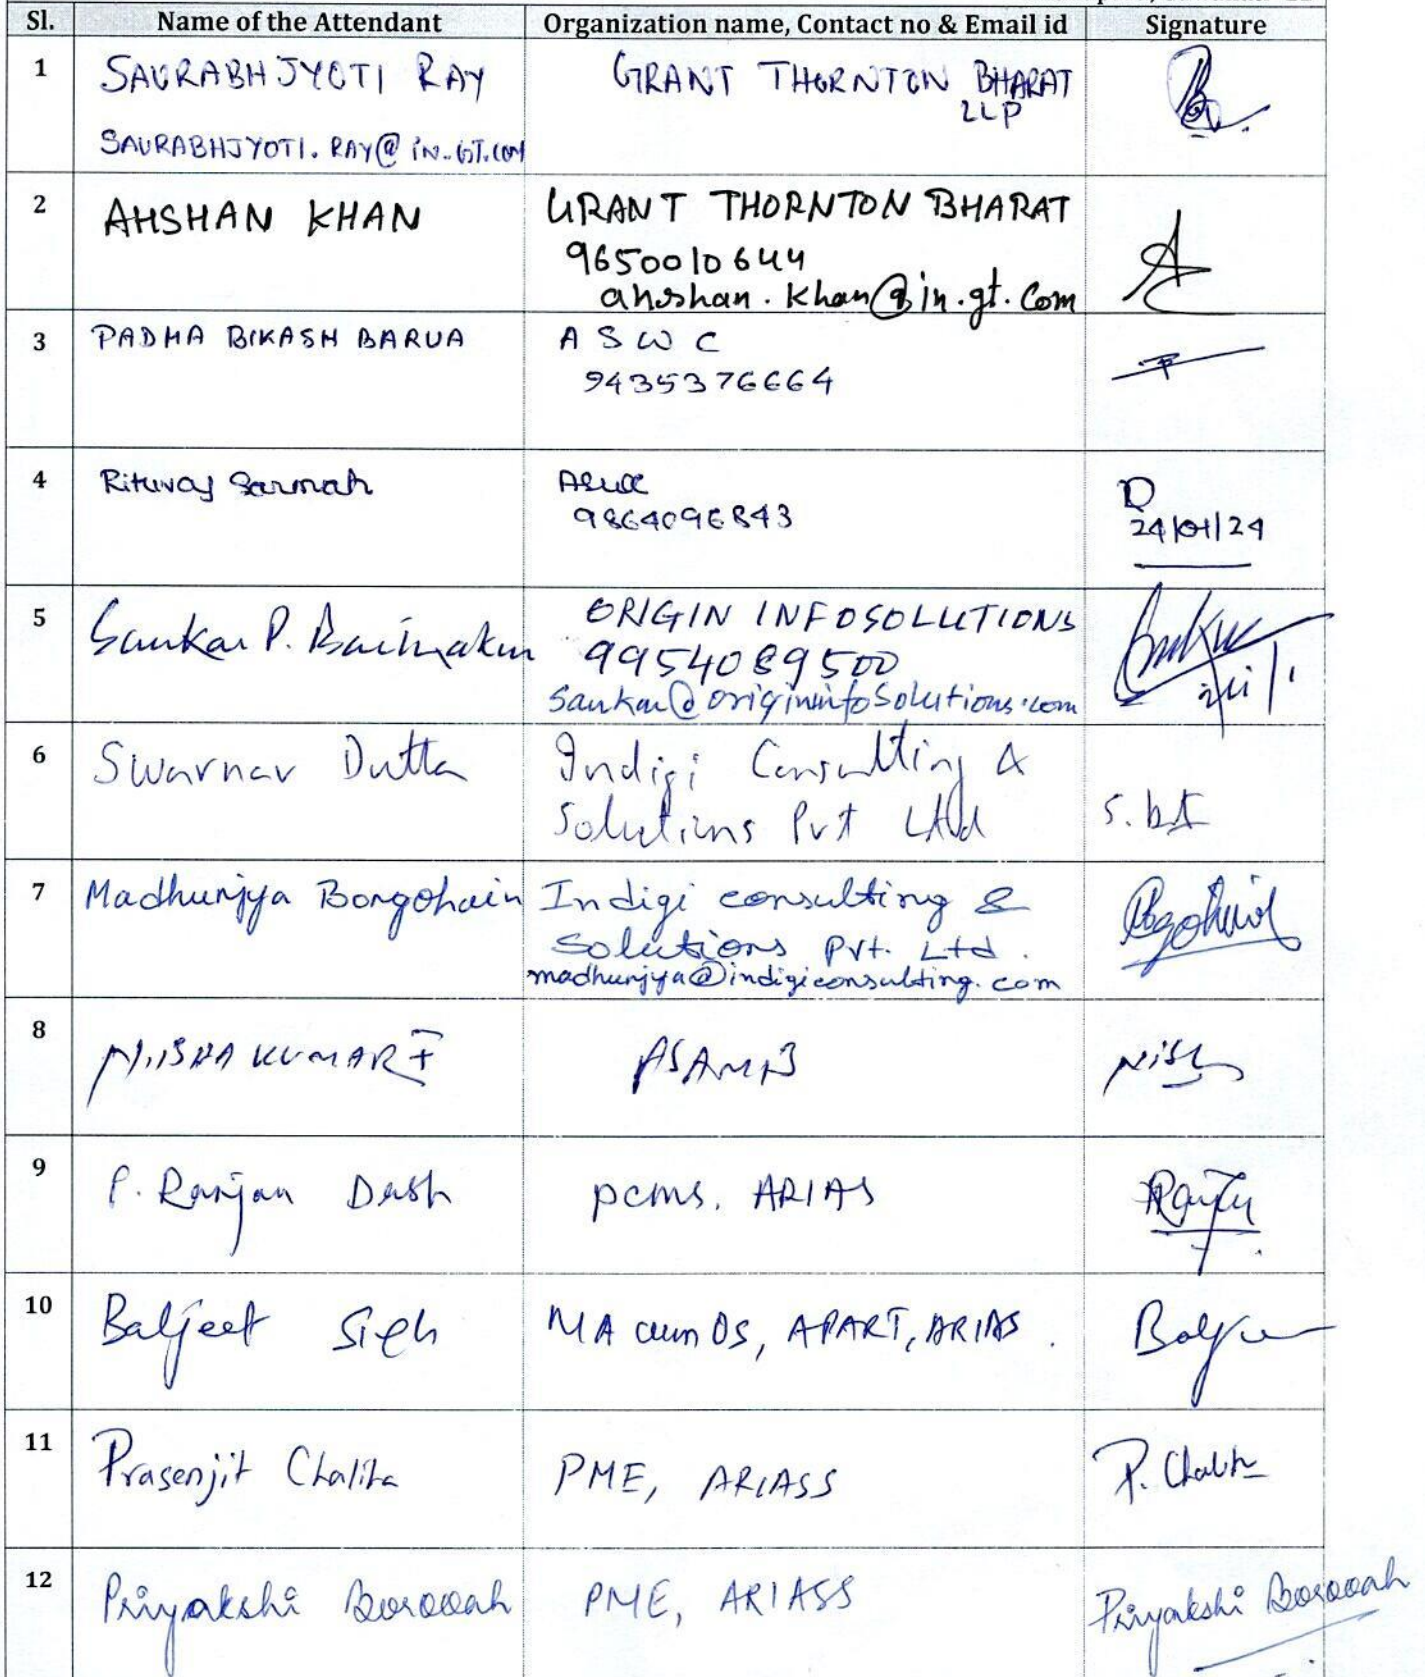 Sl. Name of the Attendant Organization name, Contact no & Email id Signature
1 SAURABHJYOTI RAY GRANT THORNTON BHARAT
LLP
SAURABHJYOTI.RAY@IN.GT.COM
2 AHSHAN KHAN GRANT THORNTON BHARAT
9650010644
ahshan.khan@in.gt.com
3 PADMA BIKASH BARUA ASWC
9435376664
4 Rituraj Sarmah ASWC
9864096843
24/01/24
5 Sankar P. ORIGIN INFOSOLUTIONS
9954089500
sankar@origininfosolutions.com
6 Swarnav Dutta Indigi Consulting &
Solutions Pvt Ltd
7 Madhurjya Borgohain Indigi consulting &
Solutions Pvt. Ltd.
madhurjya@indigiconsulting.com
8 NISHA KUMARI ASAMB Nisha
9 P. Ranjan Dash PCMS, ARIAS
10 Baljeet Singh MA cum OS, APART, ARIAS.
11 Prasenjit Chaliha PME, ARIASS P. Chaliha
12 Priyakshi Borooah PME, ARIASS Priyakshi Borooah